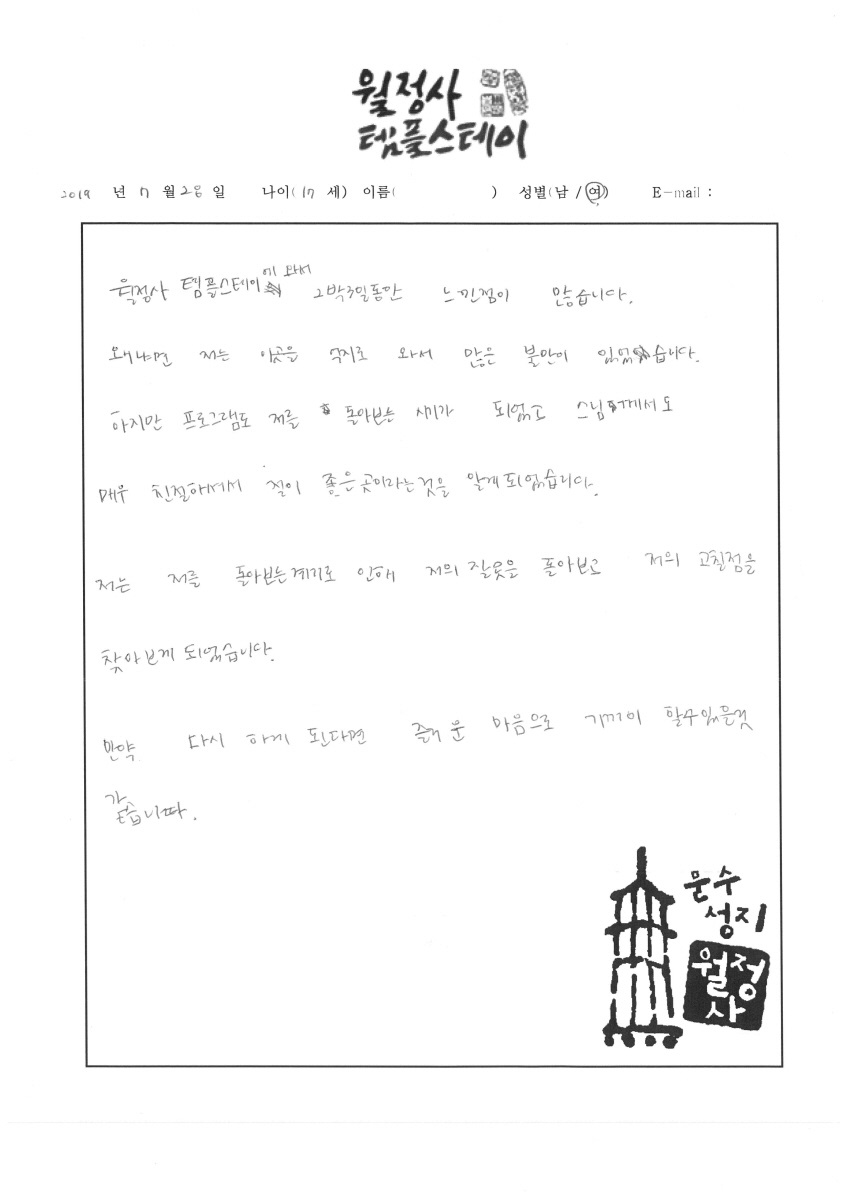 월정사
템플스테이
2019 년 7 월 28 일 나이( 17 세) 이름( ) 성별(남 / 여) E-mail :
월정사 템플스테이에 와서 2박3일동안 느낀점이 많습니다.
왜냐면 저는 이곳을 억지로 와서 많은 불만이 있었습니다.
하지만 프로그램도 저를 돌아보는 시기가 되었고 스님께서도
매우 친절하셔서 절이 좋은 곳이라는것을 알게되었습니다.
저는 저를 돌아보는계기로 인해 저의 잘못을 돌아보고 저의 고칠점을
찾아보게 되었습니다.
만약 다시 하게 된다면 즐거운 마음으로 기꺼이 할수있을것
같습니다.
문수
성지
월정
사